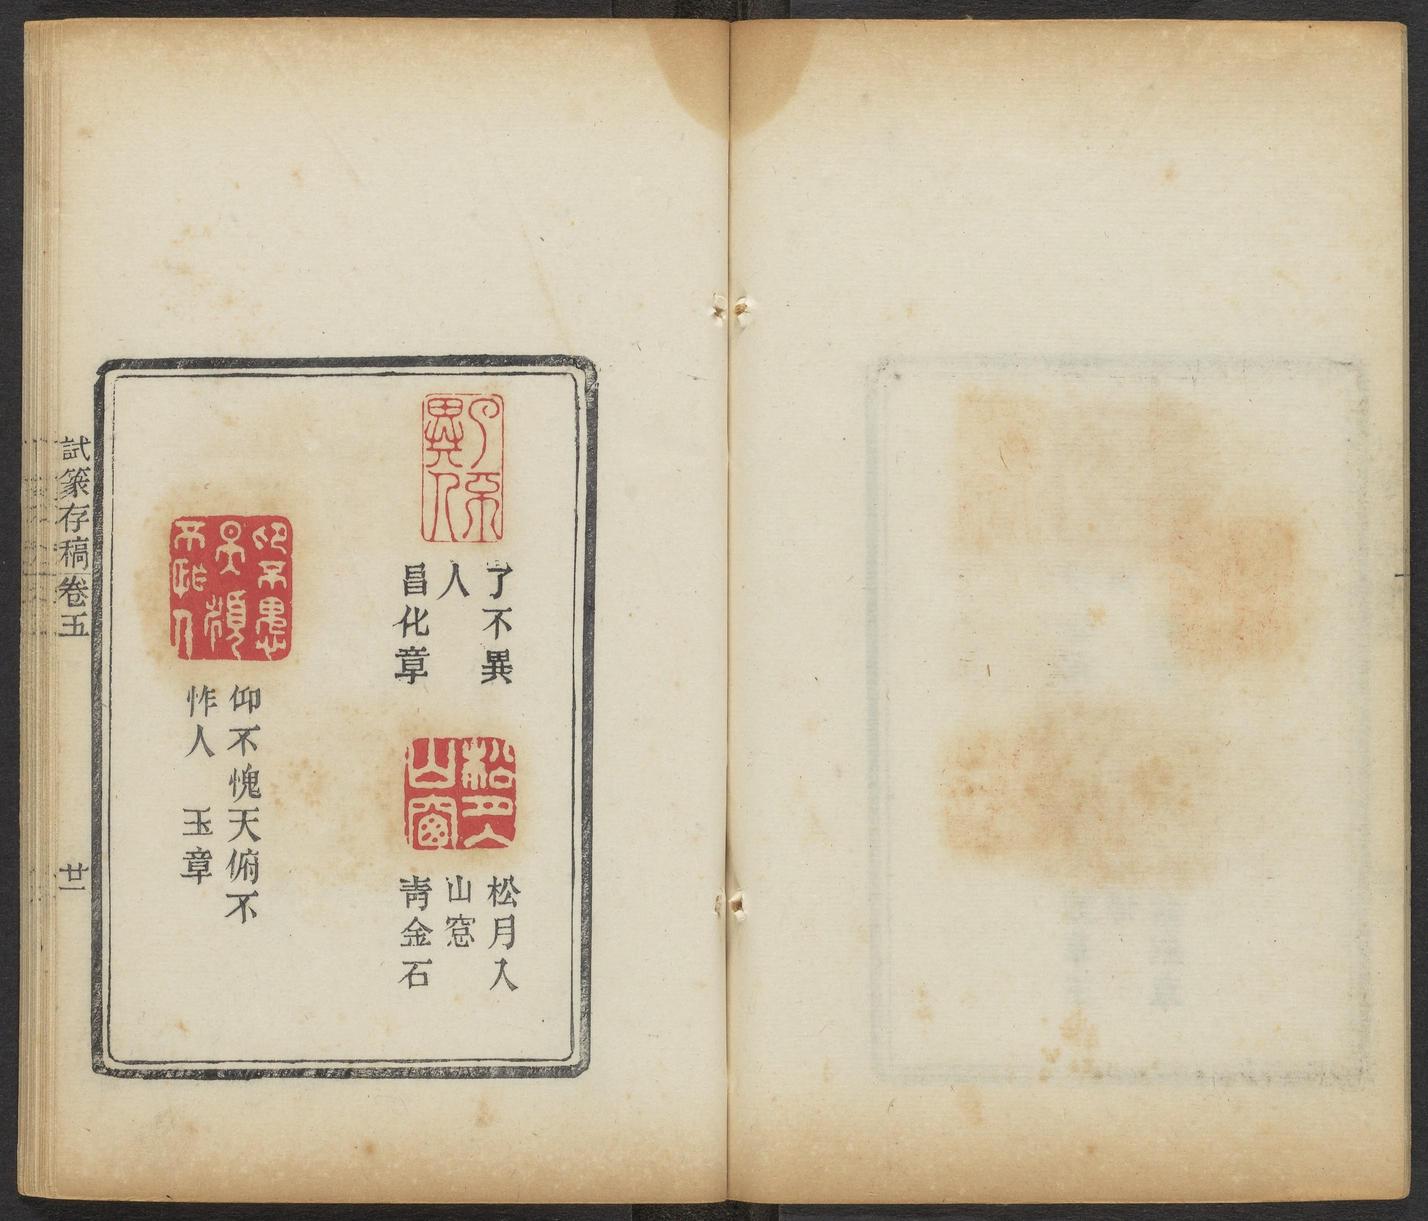 了不異
人
昌化章
了不異人
松月入
山窓
青金石
松月入山窗
仰不愧天俯不
怍人 玉章
仰不愧天俯不怍人
試篆存稿卷五
廿一